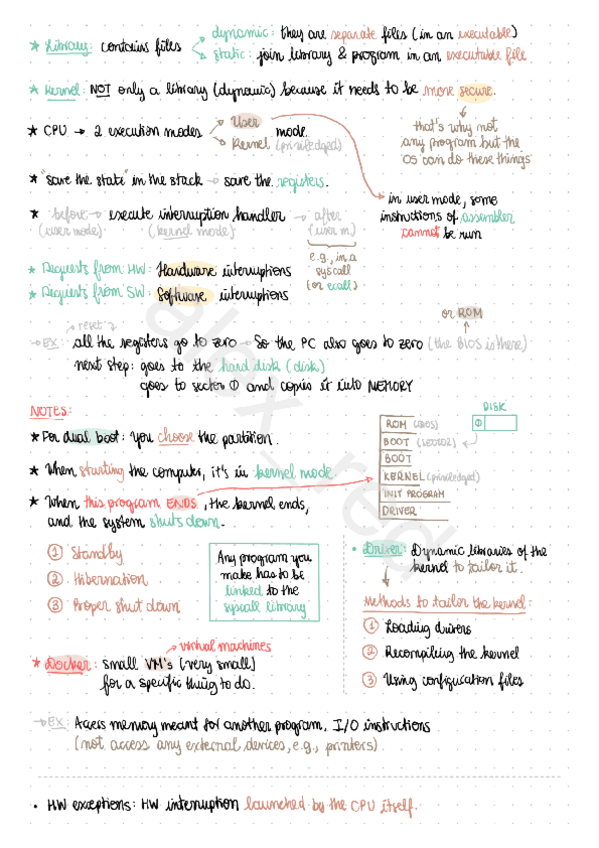 dynamic: they are separate files (in an executable)
* Library: contains files
static: join library & program in an executable file
* Kernel: NOT only a library (dynamic) because it needs to be more secure.
* CPU → 2 execution modes
User
Kernel (priviledged)
mode
that's why not
any program but the
OS can do these things
* "save the state" in the stack → save the registers.
in user mode, some
instructions of assembler
cannot be run
* before → execute interruption handler → after
(user mode) (kernel mode) (user m.)
e.g., in a
syscall
(or ecall)
* Requests from HW: Hardware interruptions
* Requests from SW: Software interruptions
or ROM
reset
→ EX: all the registers go to zero → So the PC also goes to zero (the BIOS is there)
next step: goes to the hard disk (disk)
goes to sector 0 and copies it into MEMORY
NOTES:
* For dual boot: you choose the partition.
* When starting the computer, it's in kernel mode
* When this program ENDS, the kernel ends,
and the system shuts down.
1 Standby
2 Hibernation
3 Proper shut down
Any program you
make has to be
linked to the
syscall library
DISK
0
ROM (BIOS)
BOOT (SECTOR)
BOOT
KERNEL (priviledged)
INIT PROGRAM
DRIVER
• Driver: Dynamic libraries of the
kernel to tailor it.
Methods to tailor the kernel:
1 Loading drivers
2 Recompiling the kernel
3 Using configuration files
virtual machines
* Docker: small VM's (very small)
for a specific thing to do.
→ EX: Access memory meant for another program, I/O instructions
(not access any external devices, e.g., printers)
• HW exceptions: HW interruption launched by the CPU itself.
alex_red